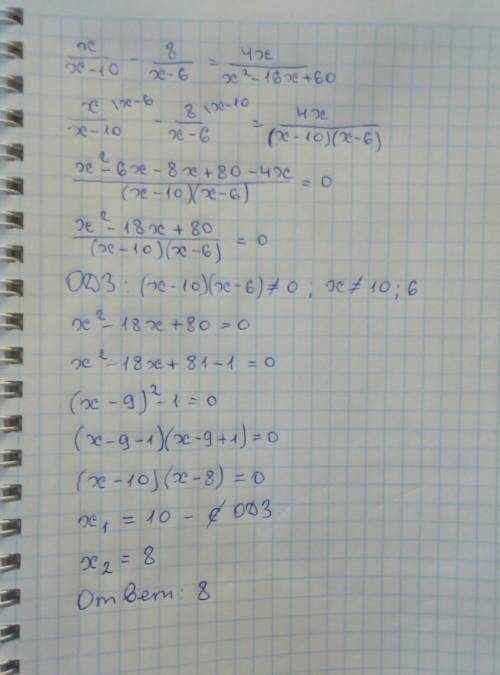 x/(x-10) - 8/(x-6) = 4x/(x²-16x+60)
x\x-6/(x-10) - 8\x-10/(x-6) = 4x/((x-10)(x-6))
(x²-6x-8x+80-4x)/((x-10)(x-6)) = 0
(x²-18x+80)/((x-10)(x-6)) = 0
ОДЗ: (x-10)(x-6)≠0; x≠10; 6
x²-18x+80=0
x²-18x+81-1=0
(x-9)²-1=0
(x-9-1)(x-9+1)=0
(x-10)(x-8)=0
x₁=10 - ∉ ОДЗ
x₂=8
Ответ: 8